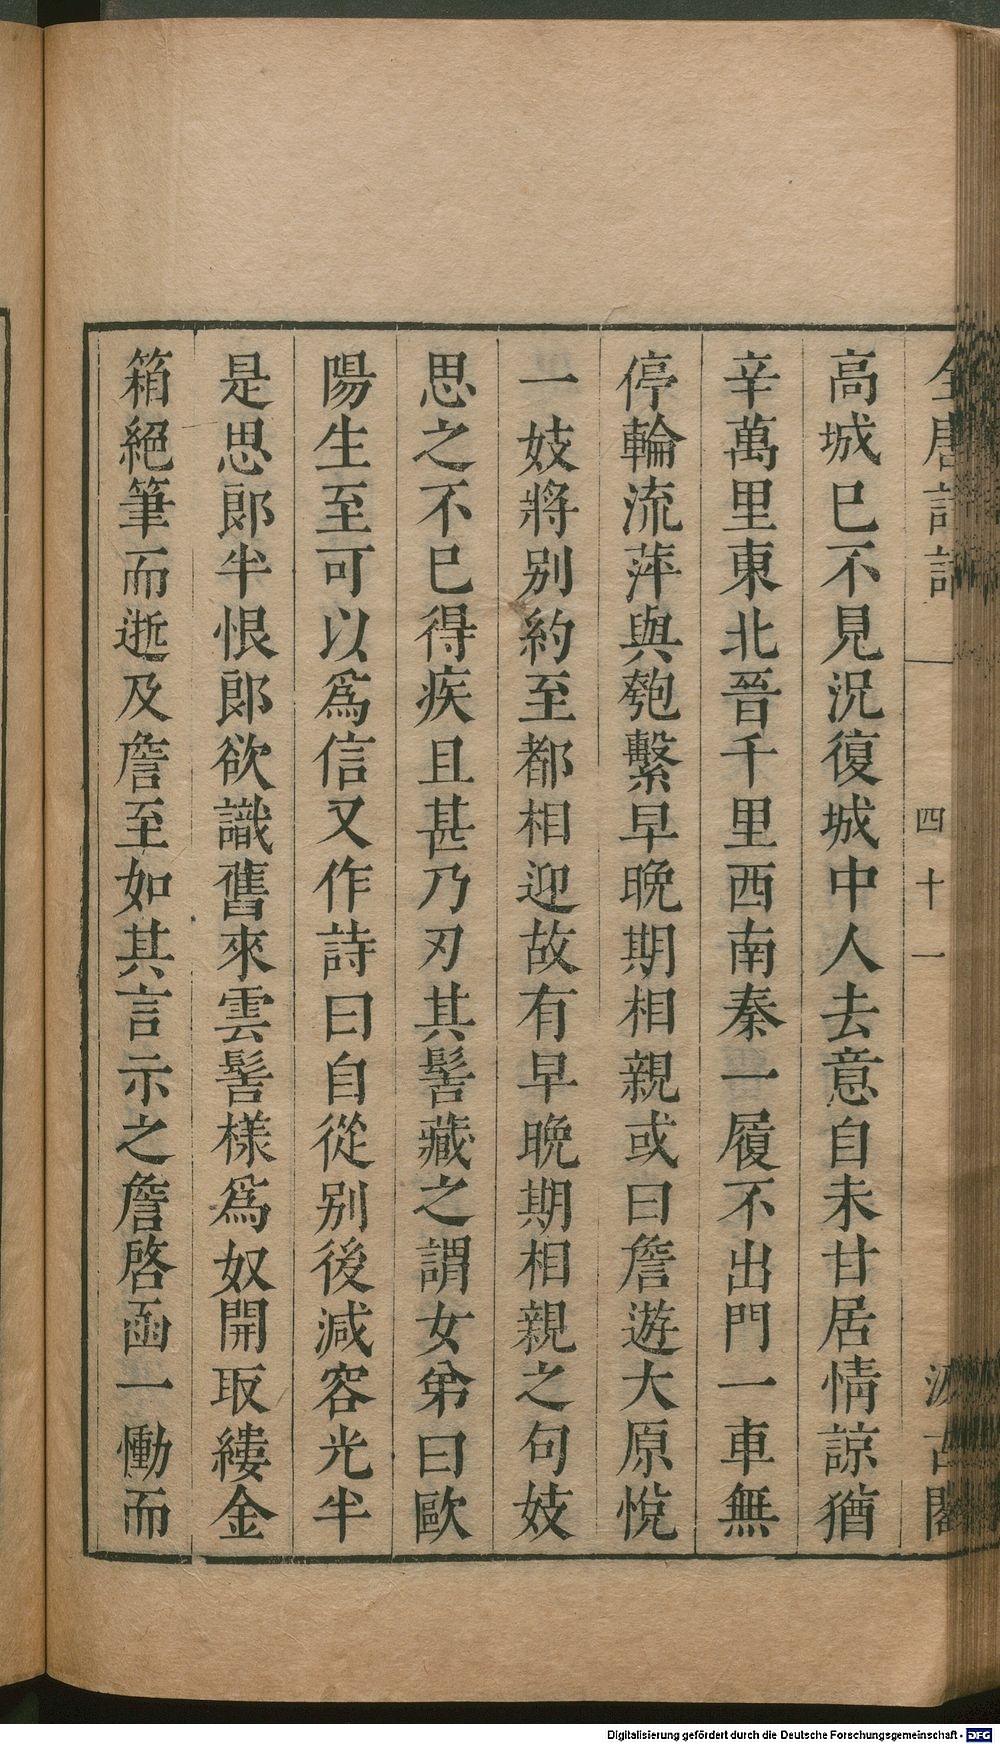 全唐詩話 四十一 汲古閣
高城巳不見況復城中人去意自未甘居情諒猶
辛萬里東北晉千里西南秦一履不出門一車無
停輪流萍與匏繫早晚期相親或曰詹遊大原悅
一妓將别約至都相迎故有早晚期相親之句妓
思之不巳得疾且甚乃刃其髻藏之謂女弟曰歐
陽生至可以爲信又作詩曰自從别後減容光半
是思郎半恨郎欲識舊來雲髻樣爲奴開取縷金
箱絕筆而逝及詹至如其言示之詹啓函一慟而
Digitalisierung gefördert durch die Deutsche Forschungsgemeinschaft - DFG